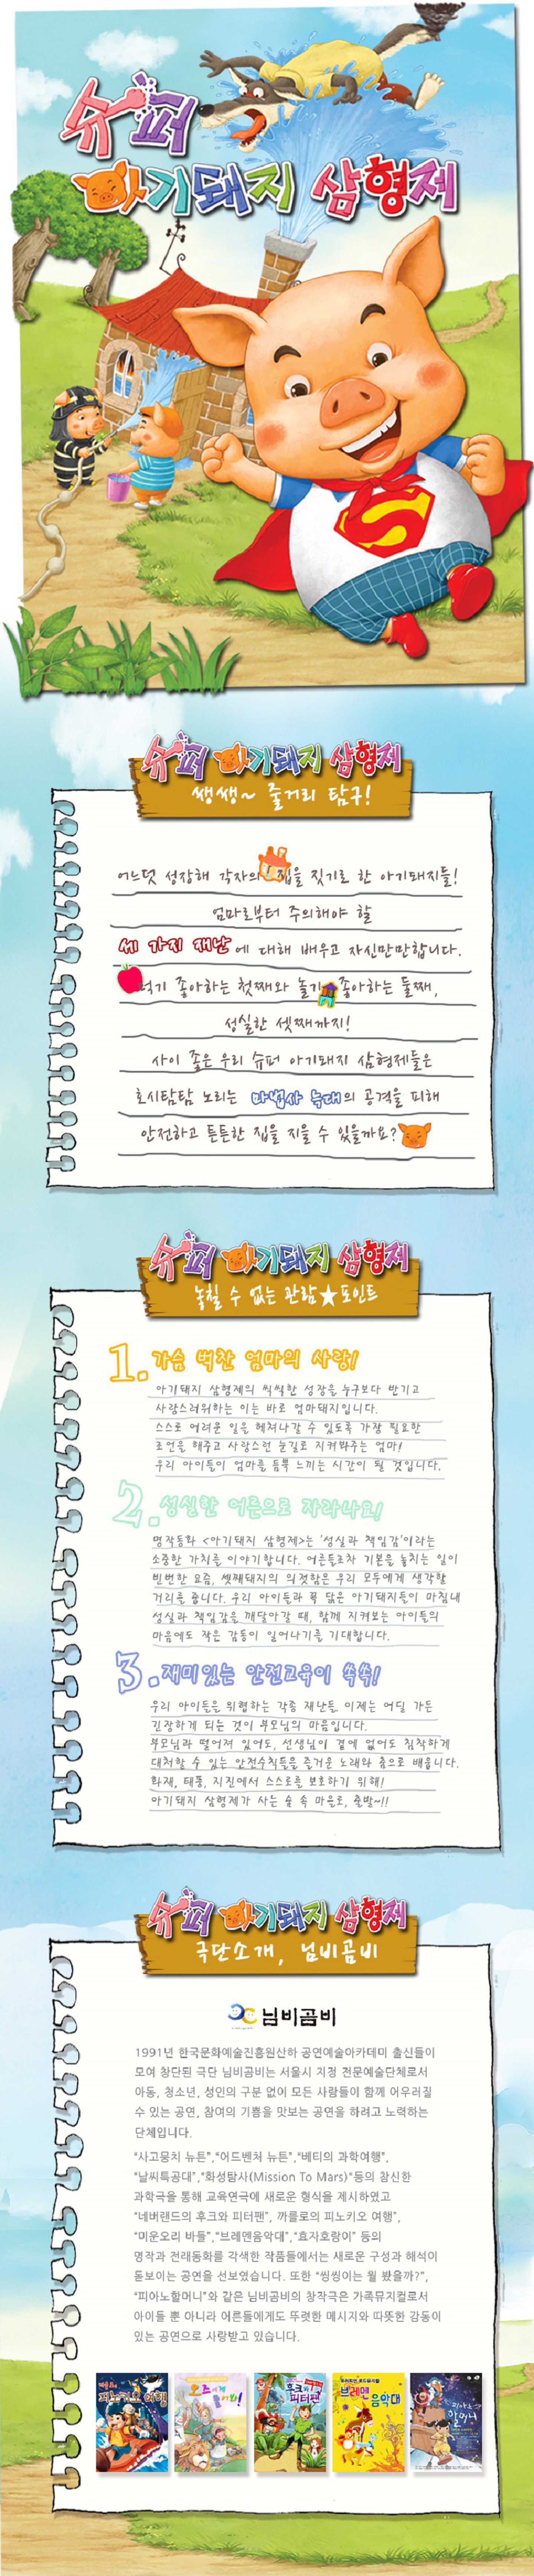 슈퍼
아기돼지 삼형제
슈퍼 아기돼지 삼형제
쌩쌩~ 줄거리 탐구!
어느덧 성장해 각자의 집을 짓기로 한 아기돼지들!
엄마로부터 주의해야 할
세 가지 재난에 대해 배우고 자신만만합니다.
먹기 좋아하는 첫째와 놀기 좋아하는 둘째,
성실한 셋째까지!
사이 좋은 우리 슈퍼 아기돼지 삼형제들은
호시탐탐 노리는 마법사 늑대의 공격을 피해
안전하고 튼튼한 집을 지을 수 있을까요?
슈퍼 아기돼지 삼형제
놓칠 수 없는 관람★포인트
1. 가슴 벅찬 엄마의 사랑!
아기돼지 삼형제의 씩씩한 성장을 누구보다 반기고
사랑스러워하는 이는 바로 엄마돼지입니다.
스스로 어려운 일을 헤쳐나갈 수 있도록 가장 필요한
조언을 해주고 사랑스런 눈길로 지켜봐주는 엄마!
우리 아이들이 엄마를 듬뿍 느끼는 시간이 될 것입니다.
2. 성실한 어른으로 자라나요!
명작동화 <아기돼지 삼형제>는 '성실과 책임감'이라는
소중한 가치를 이야기합니다. 어른들조차 기본을 놓치는 일이
빈번한 요즘, 셋째돼지의 의젓함은 우리 모두에게 생각할
거리를 줍니다. 우리 아이들과 꼭 닮은 아기돼지들이 마침내
성실과 책임감을 깨달아갈 때, 함께 지켜보는 아이들의
마음에도 작은 감동이 일어나기를 기대합니다.
3. 재미있는 안전교육이 쏙쏙!
우리 아이들을 위협하는 각종 재난들 이제는 어딜 가든
긴장하게 되는 것이 부모님의 마음입니다.
부모님과 떨어져 있어도, 선생님이 곁에 없어도 침착하게
대처할 수 있는 안전수칙들을 즐거운 노래와 춤으로 배웁니다.
화재, 태풍, 지진에서 스스로를 보호하기 위해!
아기돼지 삼형제가 사는 숲 속 마을로, 출발~!!
슈퍼 아기돼지 삼형제
극단소개, 님비곰비
님비곰비
1991년 한국문화예술진흥원산하 공연예술아카데미 출신들이
모여 창단된 극단 님비곰비는 서울시 지정 전문예술단체로서
아동, 청소년, 성인의 구분 없이 모든 사람들이 함께 어우러질
수 있는 공연, 참여의 기쁨을 맛보는 공연을 하려고 노력하는
단체입니다.
"사고뭉치 뉴튼","어드벤처 뉴튼","베티의 과학여행",
"날씨특공대","화성탐사(Mission To Mars)"등의 참신한
과학극을 통해 교육연극에 새로운 형식을 제시하였고
"네버랜드의 후크와 피터팬", 까를로의 피노키오 여행",
"미운오리 바들","브레멘음악대","효자호랑이" 등의
명작과 전래동화를 각색한 작품들에서는 새로운 구성과 해석이
돋보이는 공연을 선보였습니다. 또한 "씽씽이는 뭘 봤을까?",
"피아노할머니"와 같은 님비곰비의 창작극은 가족뮤지컬로서
아이들 뿐 아니라 어른들에게도 뚜렷한 메시지와 따뜻한 감동이
있는 공연으로 사랑받고 있습니다.
피노키오 여행
후크와
피터팬
브레멘
음악대
피아노
할머니